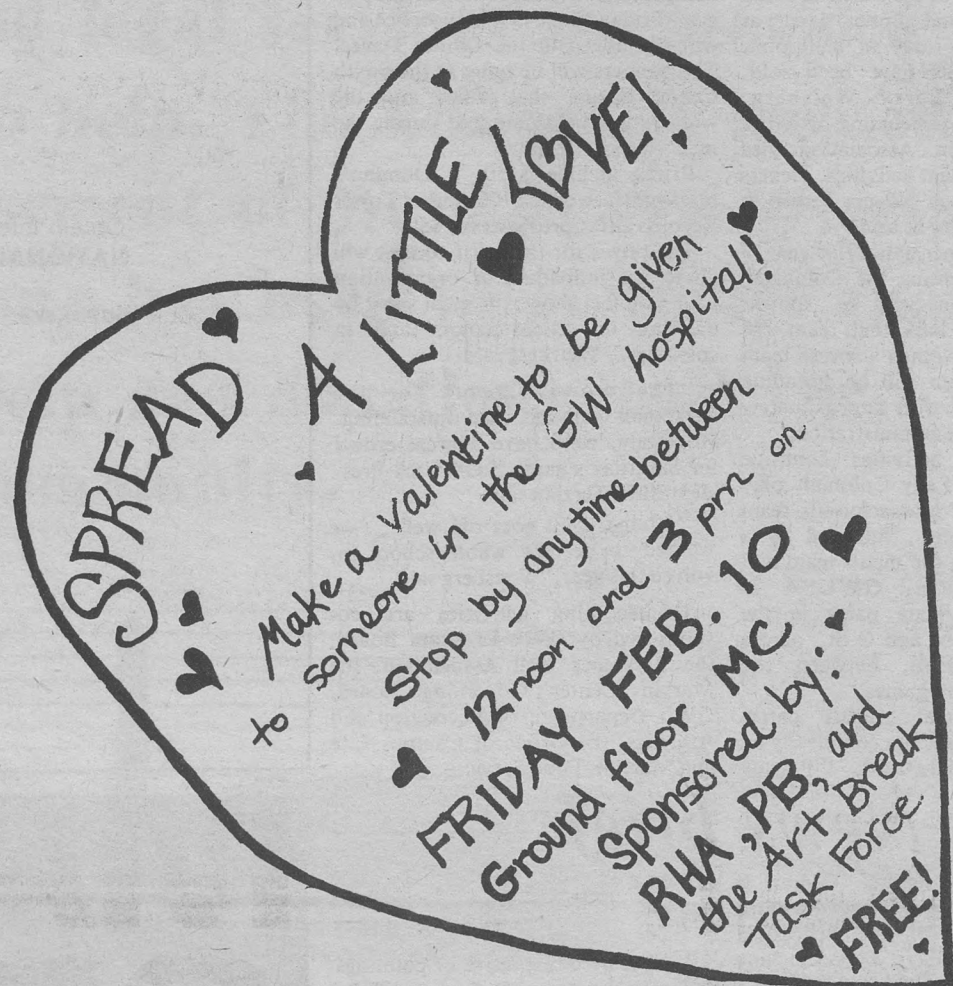 SPREAD
A LITTLE LOVE!
Make a valentine to be given
to someone in the GW hospital!
Stop by anytime between
12 noon and 3 pm on
FRIDAY FEB. 10
Ground floor MC
Sponsored by:
RHA, PB, and
the Art Break
Task Force.
FREE!